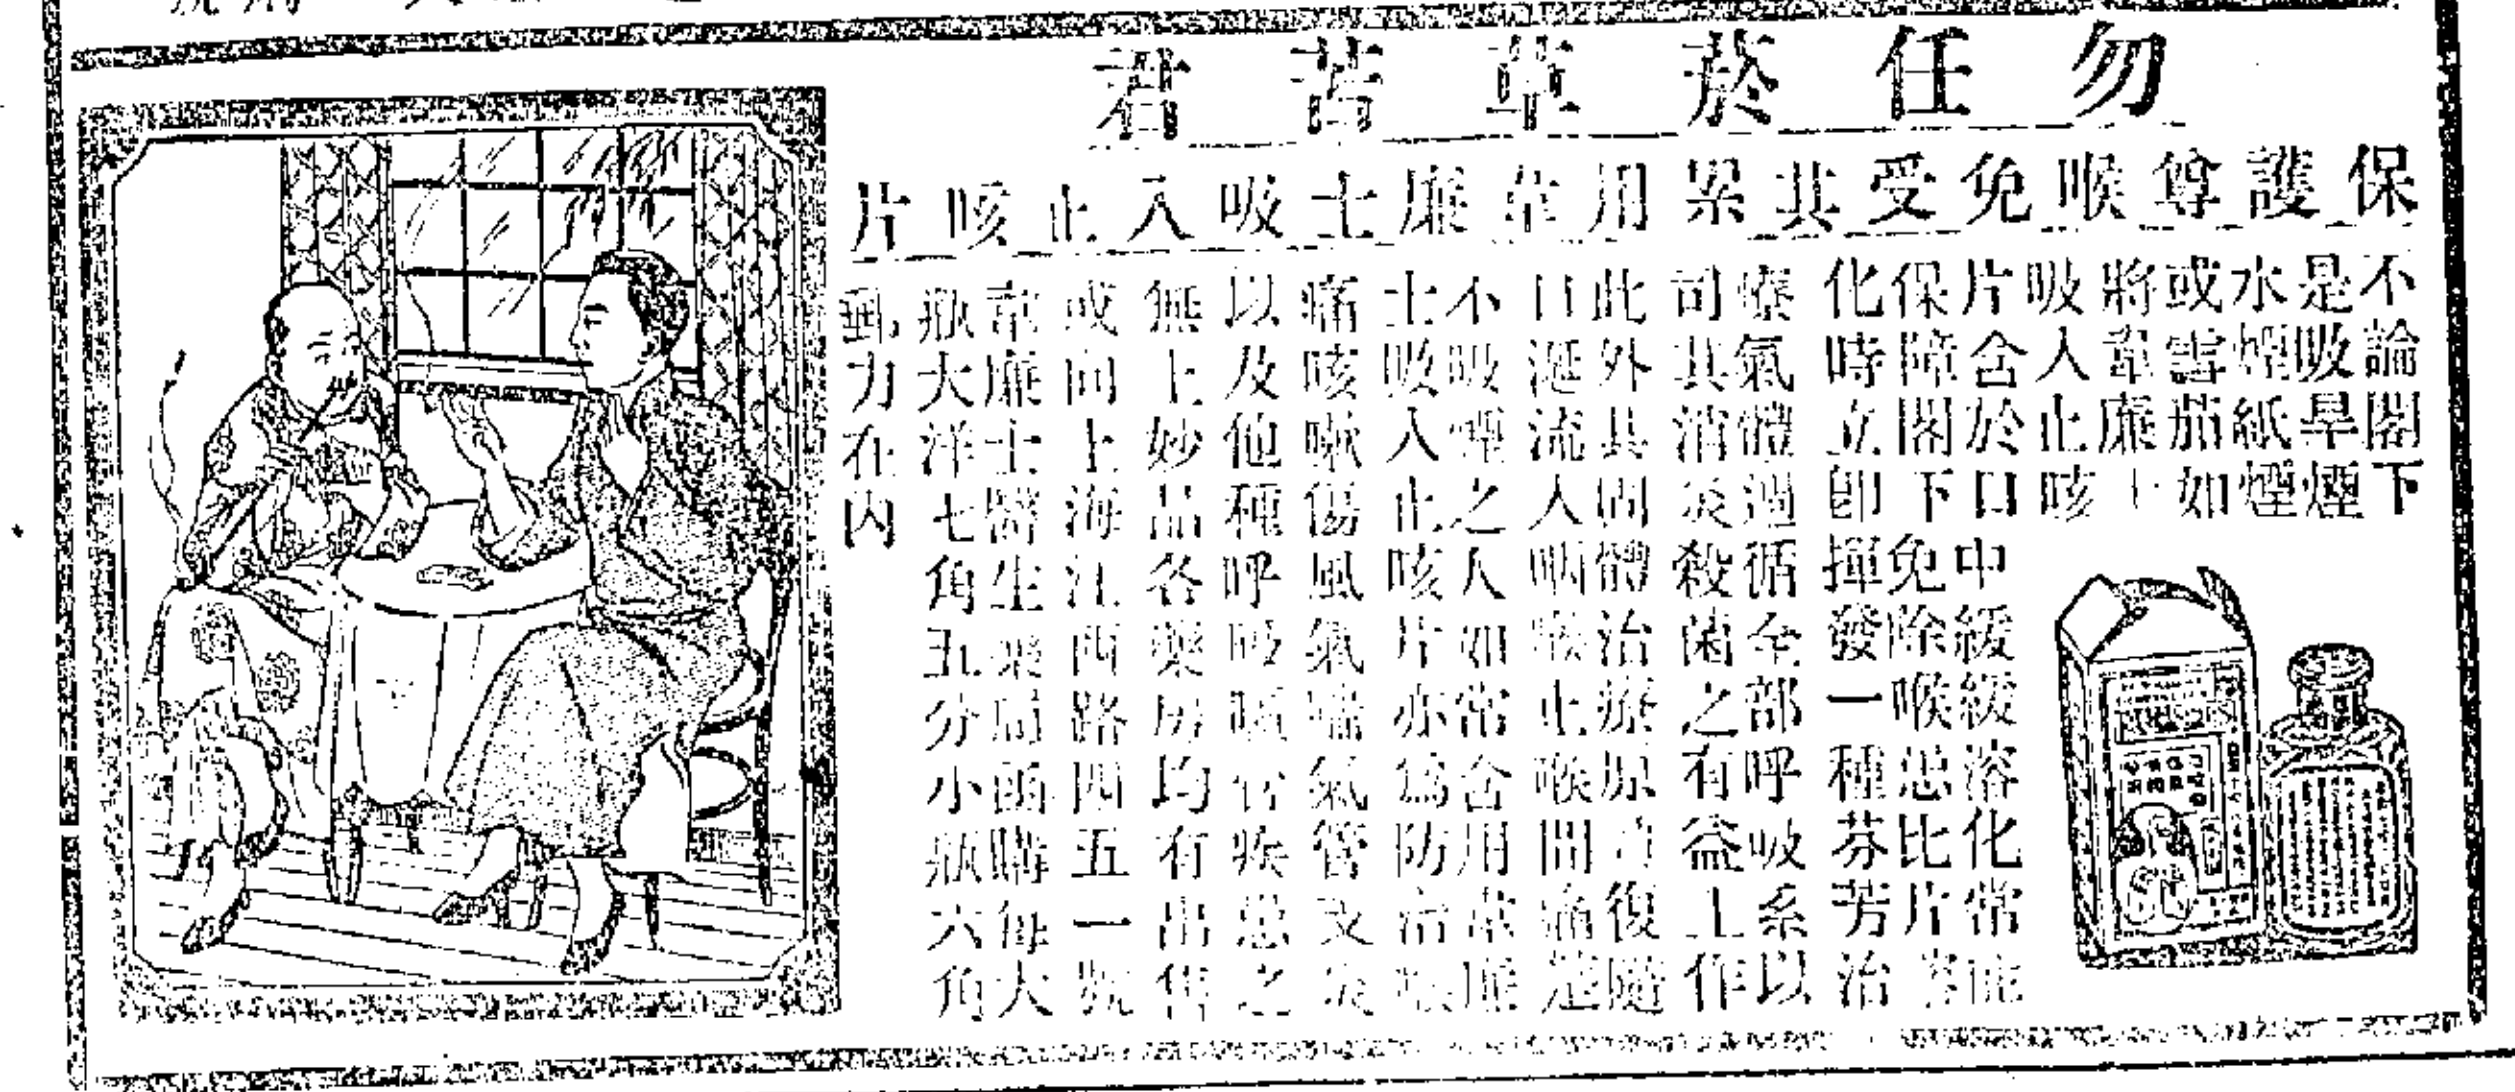 勿任菸草苦君
保護尊喉免受其累用韋廉士吸入止咳片
不論閣下
是吸旱煙
水煙紙煙
或雪茄如
將韋廉士
吸入止咳
片含於口中緩緩溶化常能
保障閣下免除喉患比片
化時立卽揮發一種芬芳治
療氣體過循全部呼吸系以
司其消炎殺菌之有益工作
此外其間體治療原力復隨
口涎流入咽喉止喉間痛楚
不吸煙之人如常含用韋廉
士吸入止咳片亦爲防治喉
痛咳嗽傷風氣喘氣管支炎
以及他種呼吸器官疾患之
無上妙品各藥房均有出售
或向上海江西路四五一號
韋廉士醫生藥局函購每大
瓶大洋七角五分小瓶六角
郵力在內